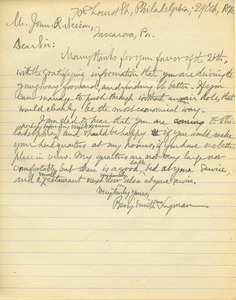 Locust St, Philadelphia, 29 Oct, 189
Mr. John R.
Tuscarora, Pa.
Dear Sir:
Many thanks for your favor of the 24th,
with the gratifying information that you are driving the
gangway forward, and finding it better. If you
can manage to push through without air hole, that
would clearly be the most economical way.
I am glad to hear that you are coming to Phi-
ladelphia; and should be happy if you would make
your headquarters at my house, if you have no better
place in view. My quarters are not very large nor
comfortably; but there is a good bed at your service,
and a restaurant next door also at your service.
Very truly yours,
Benj. Smith Lyman